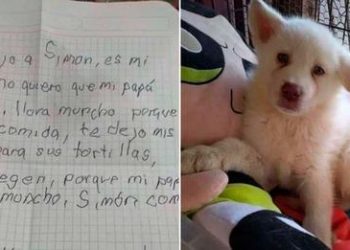 jo a Simon, es mi
no quiero que mi papá
, llora muncho porque
comida, te dejo mis
para sus tortillas,
egen, porque mi pap
moncho, Simon com